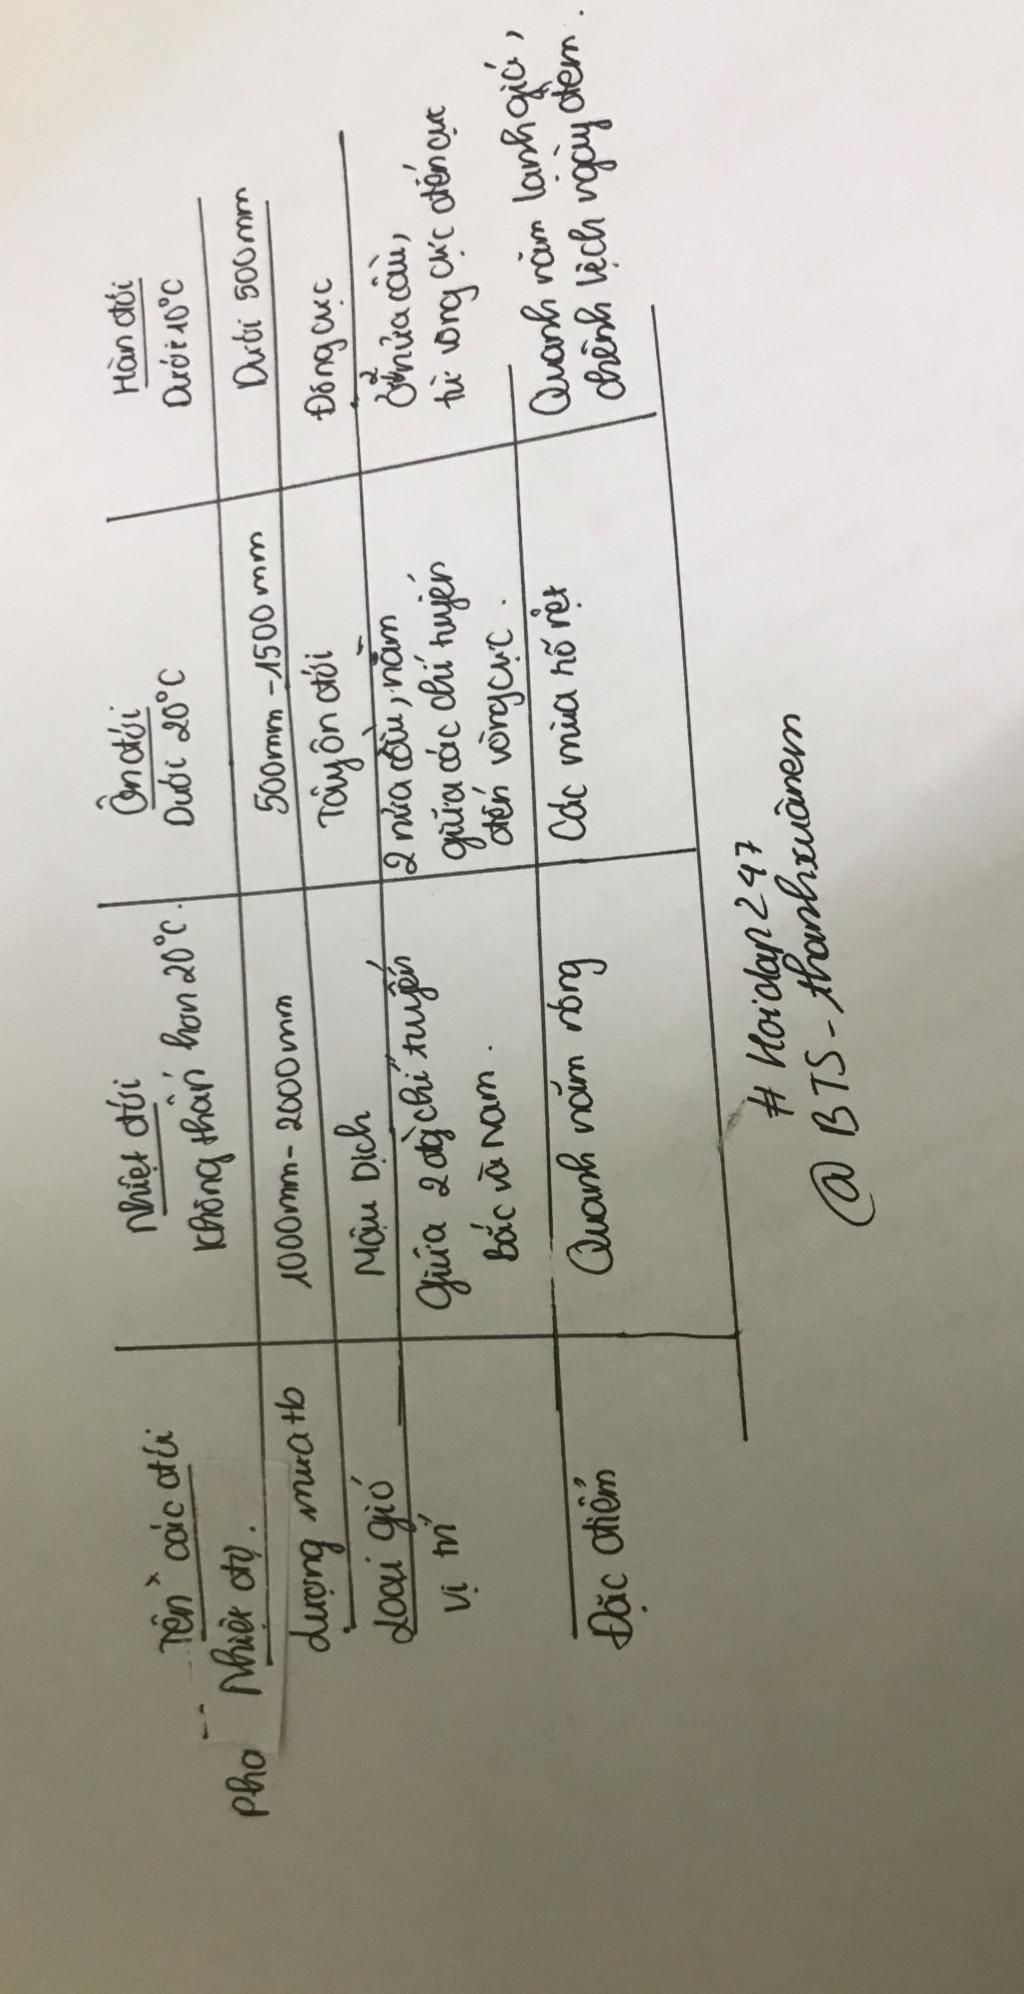 Tên các đới
Nhiệt đới
Ôn đới
Hàn đới
Pho
Nhiệt độ.
Không thấp hơn 20°C.
Dưới 20°C
Dưới 10°C
Lượng mưa tb
1000mm - 2000mm
500mm - 1500mm
Dưới 500mm
Loại gió
Mậu Dịch
Tây ôn đới
Đông cực
Vị trí
Giữa 2 đg chí tuyến
bắc và nam.
2 nửa cầu, nằm
giữa các chí tuyến
đến vòng cực.
Ở 2 nửa cầu,
từ vòng cực đến cực
Đặc điểm
Quanh năm nóng
Các mùa rõ rệt
Quanh năm lạnh giá,
chênh lệch ngày đêm.
# Hoidap247
@ BTS - thanhxuânem